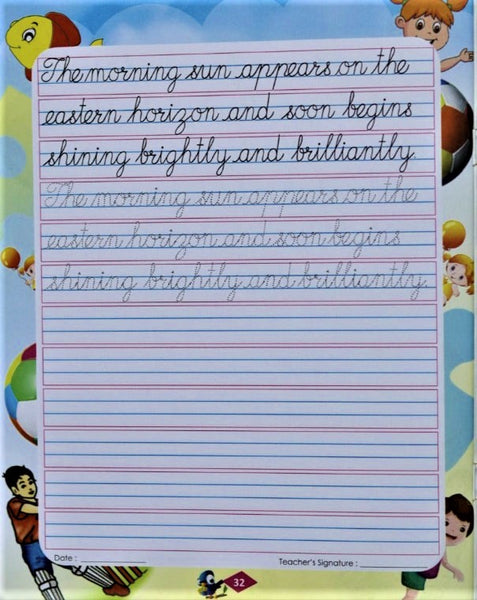 The morning sun appears on the
eastern horizon and soon begins
shining brightly and brilliantly.
The morning sun appears on the
eastern horizon and soon begins
shining brightly and brilliantly.
Date : ____________
Teacher's Signature : ____________
32